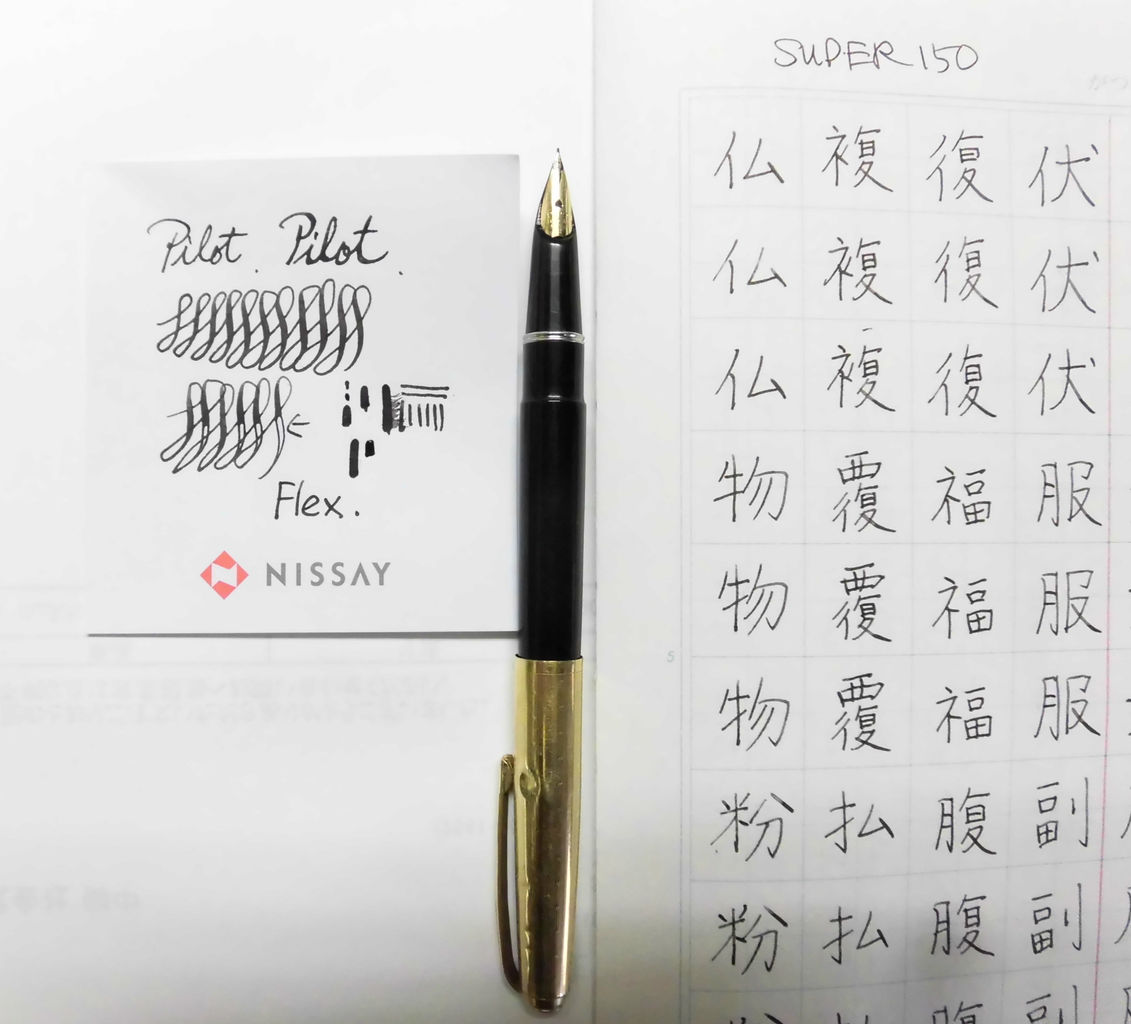 Pilot. Pilot.
Flex.
NISSAY
SUPER 150
仏 複 復 伏
仏 複 復 伏
仏 複 復 伏
物 覆 福 服
物 覆 福 服
5
物 覆 福 服
粉 払 腹 副
粉 払 腹 副
粉 払 腹 副